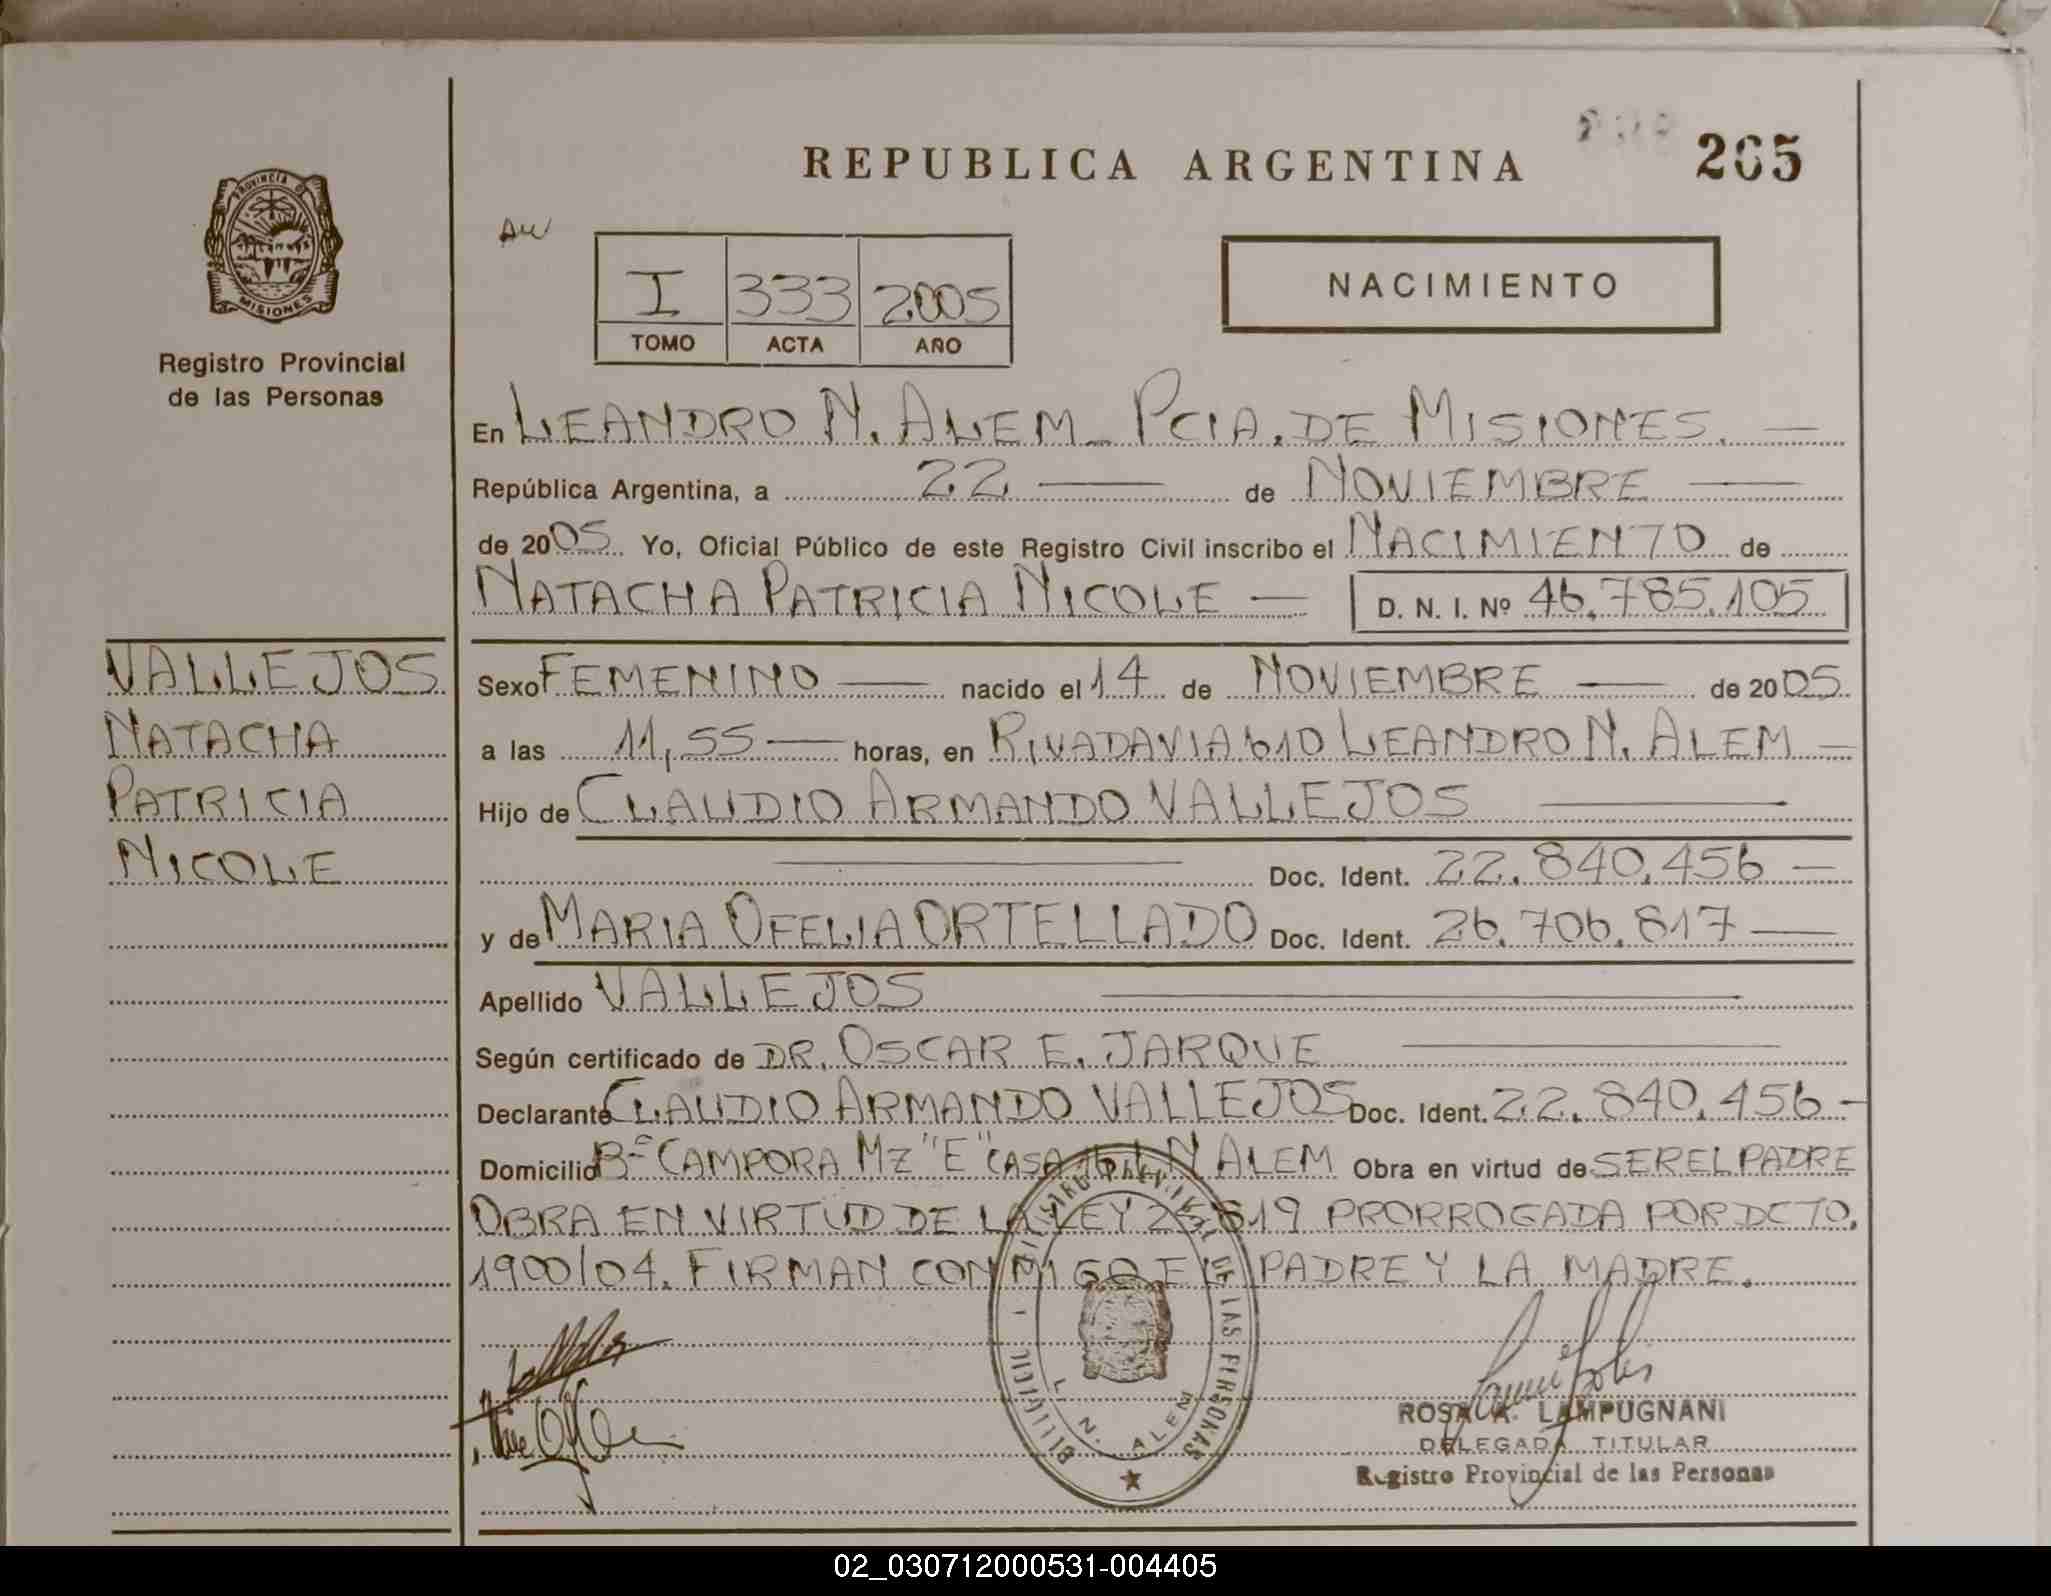 REPUBLICA ARGENTINA
265
PROVINCIA D
MISIONES
Registro Provincial
de las Personas
I 333 2005
TOMO ACTA AÑO
NACIMIENTO
En LEANDRO N. ALEM - PCIA. DE MISIONES. —
República Argentina, a 22 — de NOVIEMBRE —
de 2005 Yo, Oficial Público de este Registro Civil inscribo el NACIMIENTO de
NATACHA PATRICIA NICOLE — D. N. I. Nº 46.785.105
VALLEJOS
NATACHA
PATRICIA
NICOLE
Sexo FEMENINO — nacido el 14 de NOVIEMBRE — de 2005
a las 11,55 — horas, en RIVADAVIA 610 LEANDRO N. ALEM —
Hijo de CLAUDIO ARMANDO VALLEJOS —
— Doc. Ident. 22.840.456 —
y de MARIA OFELIA ORTELLADO Doc. Ident. 26.706.817 —
Apellido VALLEJOS —
Según certificado de DR. OSCAR E. JARQUE —
Declarante CLAUDIO ARMANDO VALLEJOS Doc. Ident. 22.840.456 -
Domicilio Bº CAMPORA MZ "E" CASA L N ALEM Obra en virtud de SER EL PADRE
OBRA EN VIRTUD DE LA LEY 25.819 PRORROGADA POR DCTO.
1900/04. FIRMAN CONMIGO EL PADRE Y LA MADRE.
DE LAS PERSONAS
L. N. ALEM
ROSA A. LAMPUGNANI
DELEGADA TITULAR
Registro Provincial de las Personas
02_030712000531-004405